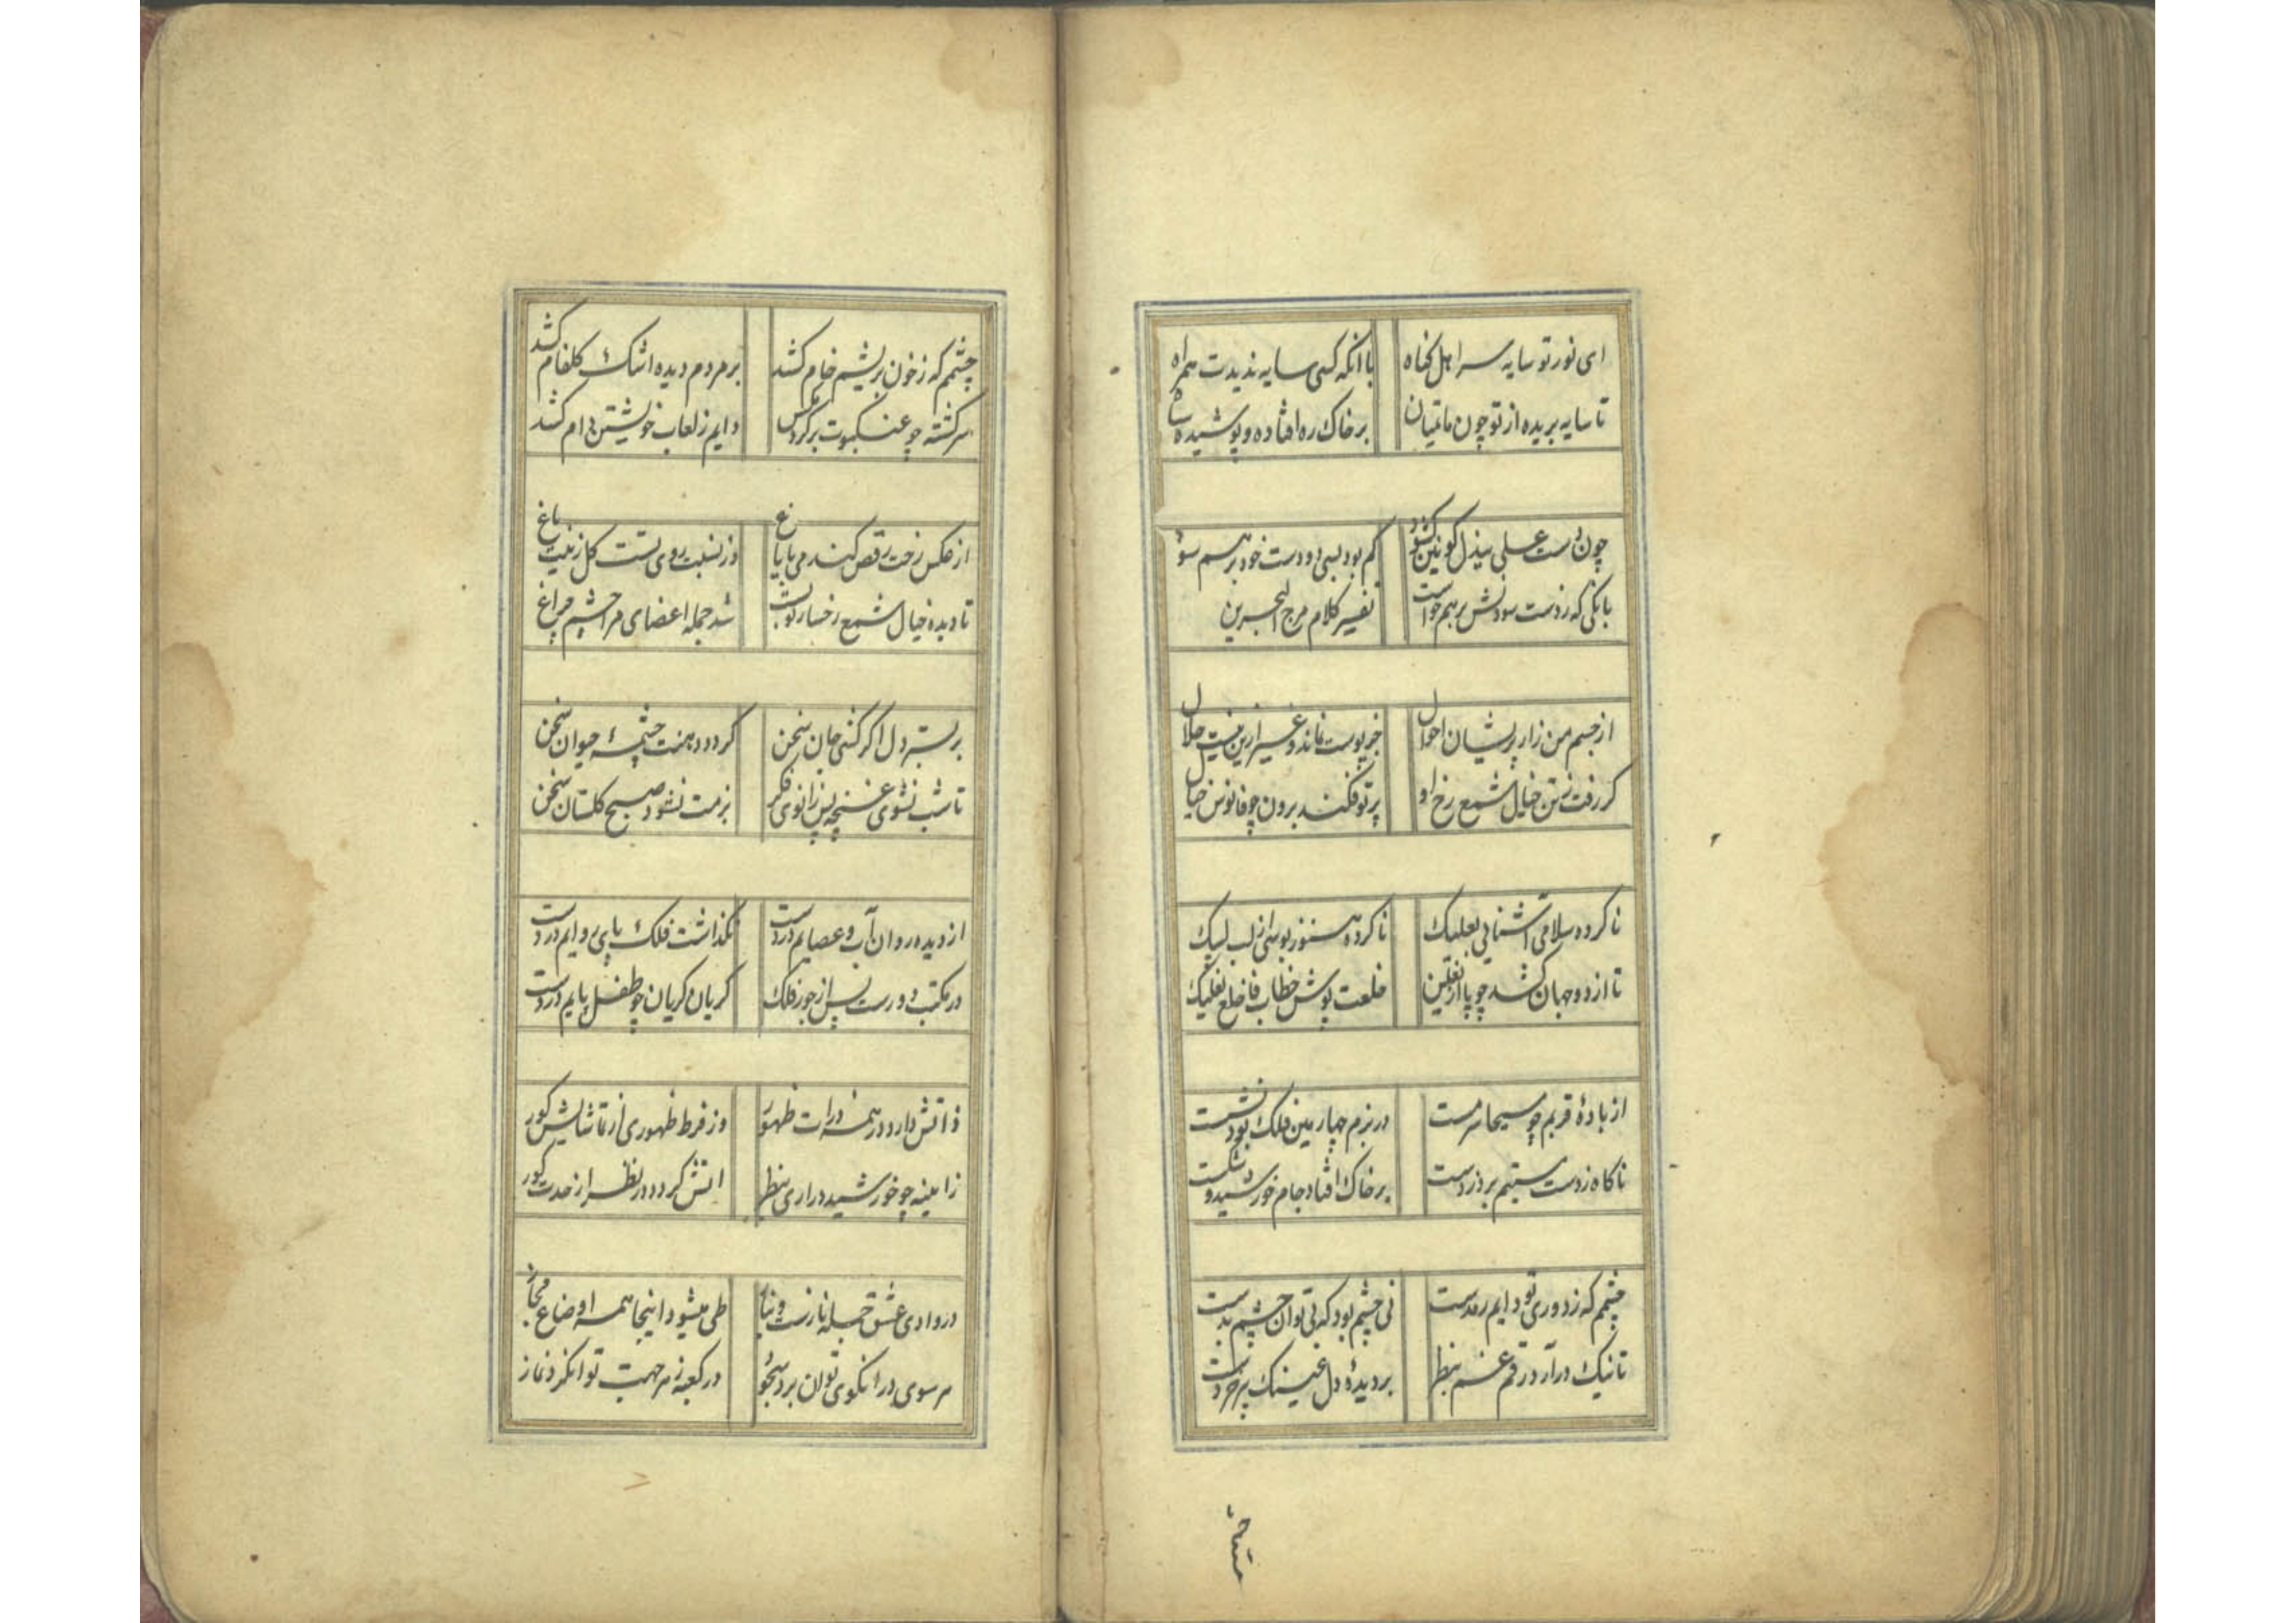 ای نور تو سایه سر اهل گناه
با آنکه کسی سایه ندیدت همراه
تا سایه بریده از تو چون ماتمیان
بر خاک ره افتاده و پوشیده سیاه
چون دست علی ببذل کونین گشود
کم بود بسی دو دست خود بر هم سود
بانکی که ز دست سودنش بر هم خواست
تفسیر کلام مرج البحرین
از جسم من زار پریشان احوال
جز پوست نماند و غیر ازین نیست حلال
کر رفت ز تن خیال شمع رخ او
پرتو فکند برون چو فانوس خیال
نا کرده سلامی آشنایی بعلیک
نا کرده هنوز بوسی از لب لبیک
تا از دو جهان کشد چو پا از نعلین
خلعت پوش خطاب فاخلع نعلیک
از بادهٔ قربم چو مسیحا سرمست
در بزم چهارمین فلک بود نشست
ناکاه ز دست مستیم برد ز دست
بر خاک افتاد جام خورشید و شکست
چشمم که ز دوری تو دایم رمدست
نی چشم بود که بی تو آن چشم بدست
تا نیک درآرد رقم غم بنظر
بر دیدهٔ دل عینک پر خردست
چشمم که ز خون بریشم خام کشد
بر مردم دیده اشک کلفام کشد
سرکشته چو عنکبوت بر کرد مکس
دایم ز لعاب خویشتن دام کشد
از عکس رخت رقص کند می بایاغ
وز نسبت روی تست کل زینت باغ
تا دیده خیال شمع رخسار تو بست
شد جمله اعضای مرا چشم چراغ
بر بستر دل اکر کنی جان سخن
کردد دهنت چشمهٔ حیوان سخن
تا شب نشوی غنچه پس زانوی فکر
بزمت نشود صبح کلستان سخن
از دیده روان آب و عصایم دردست
نکذاشت فلک بپای روایم دردست
در مکتب دورست پس از جور فلک
کریان کریان چو طفل پایم دردست
ذاتش دارد در همه ذرات ظهور
وز فرط ظهوری از تماشایش کور
زآیینه چو خورشید درآری بنظر
آتش کردد در نظر از حدت کور
در وادی عشق جمله نازست و نیاز
طی میشود اینجا همه اوضاع مجاز
هر سوی در آنکوی توان برد سجود
در کعبه ز هر جهت توان کرد نماز